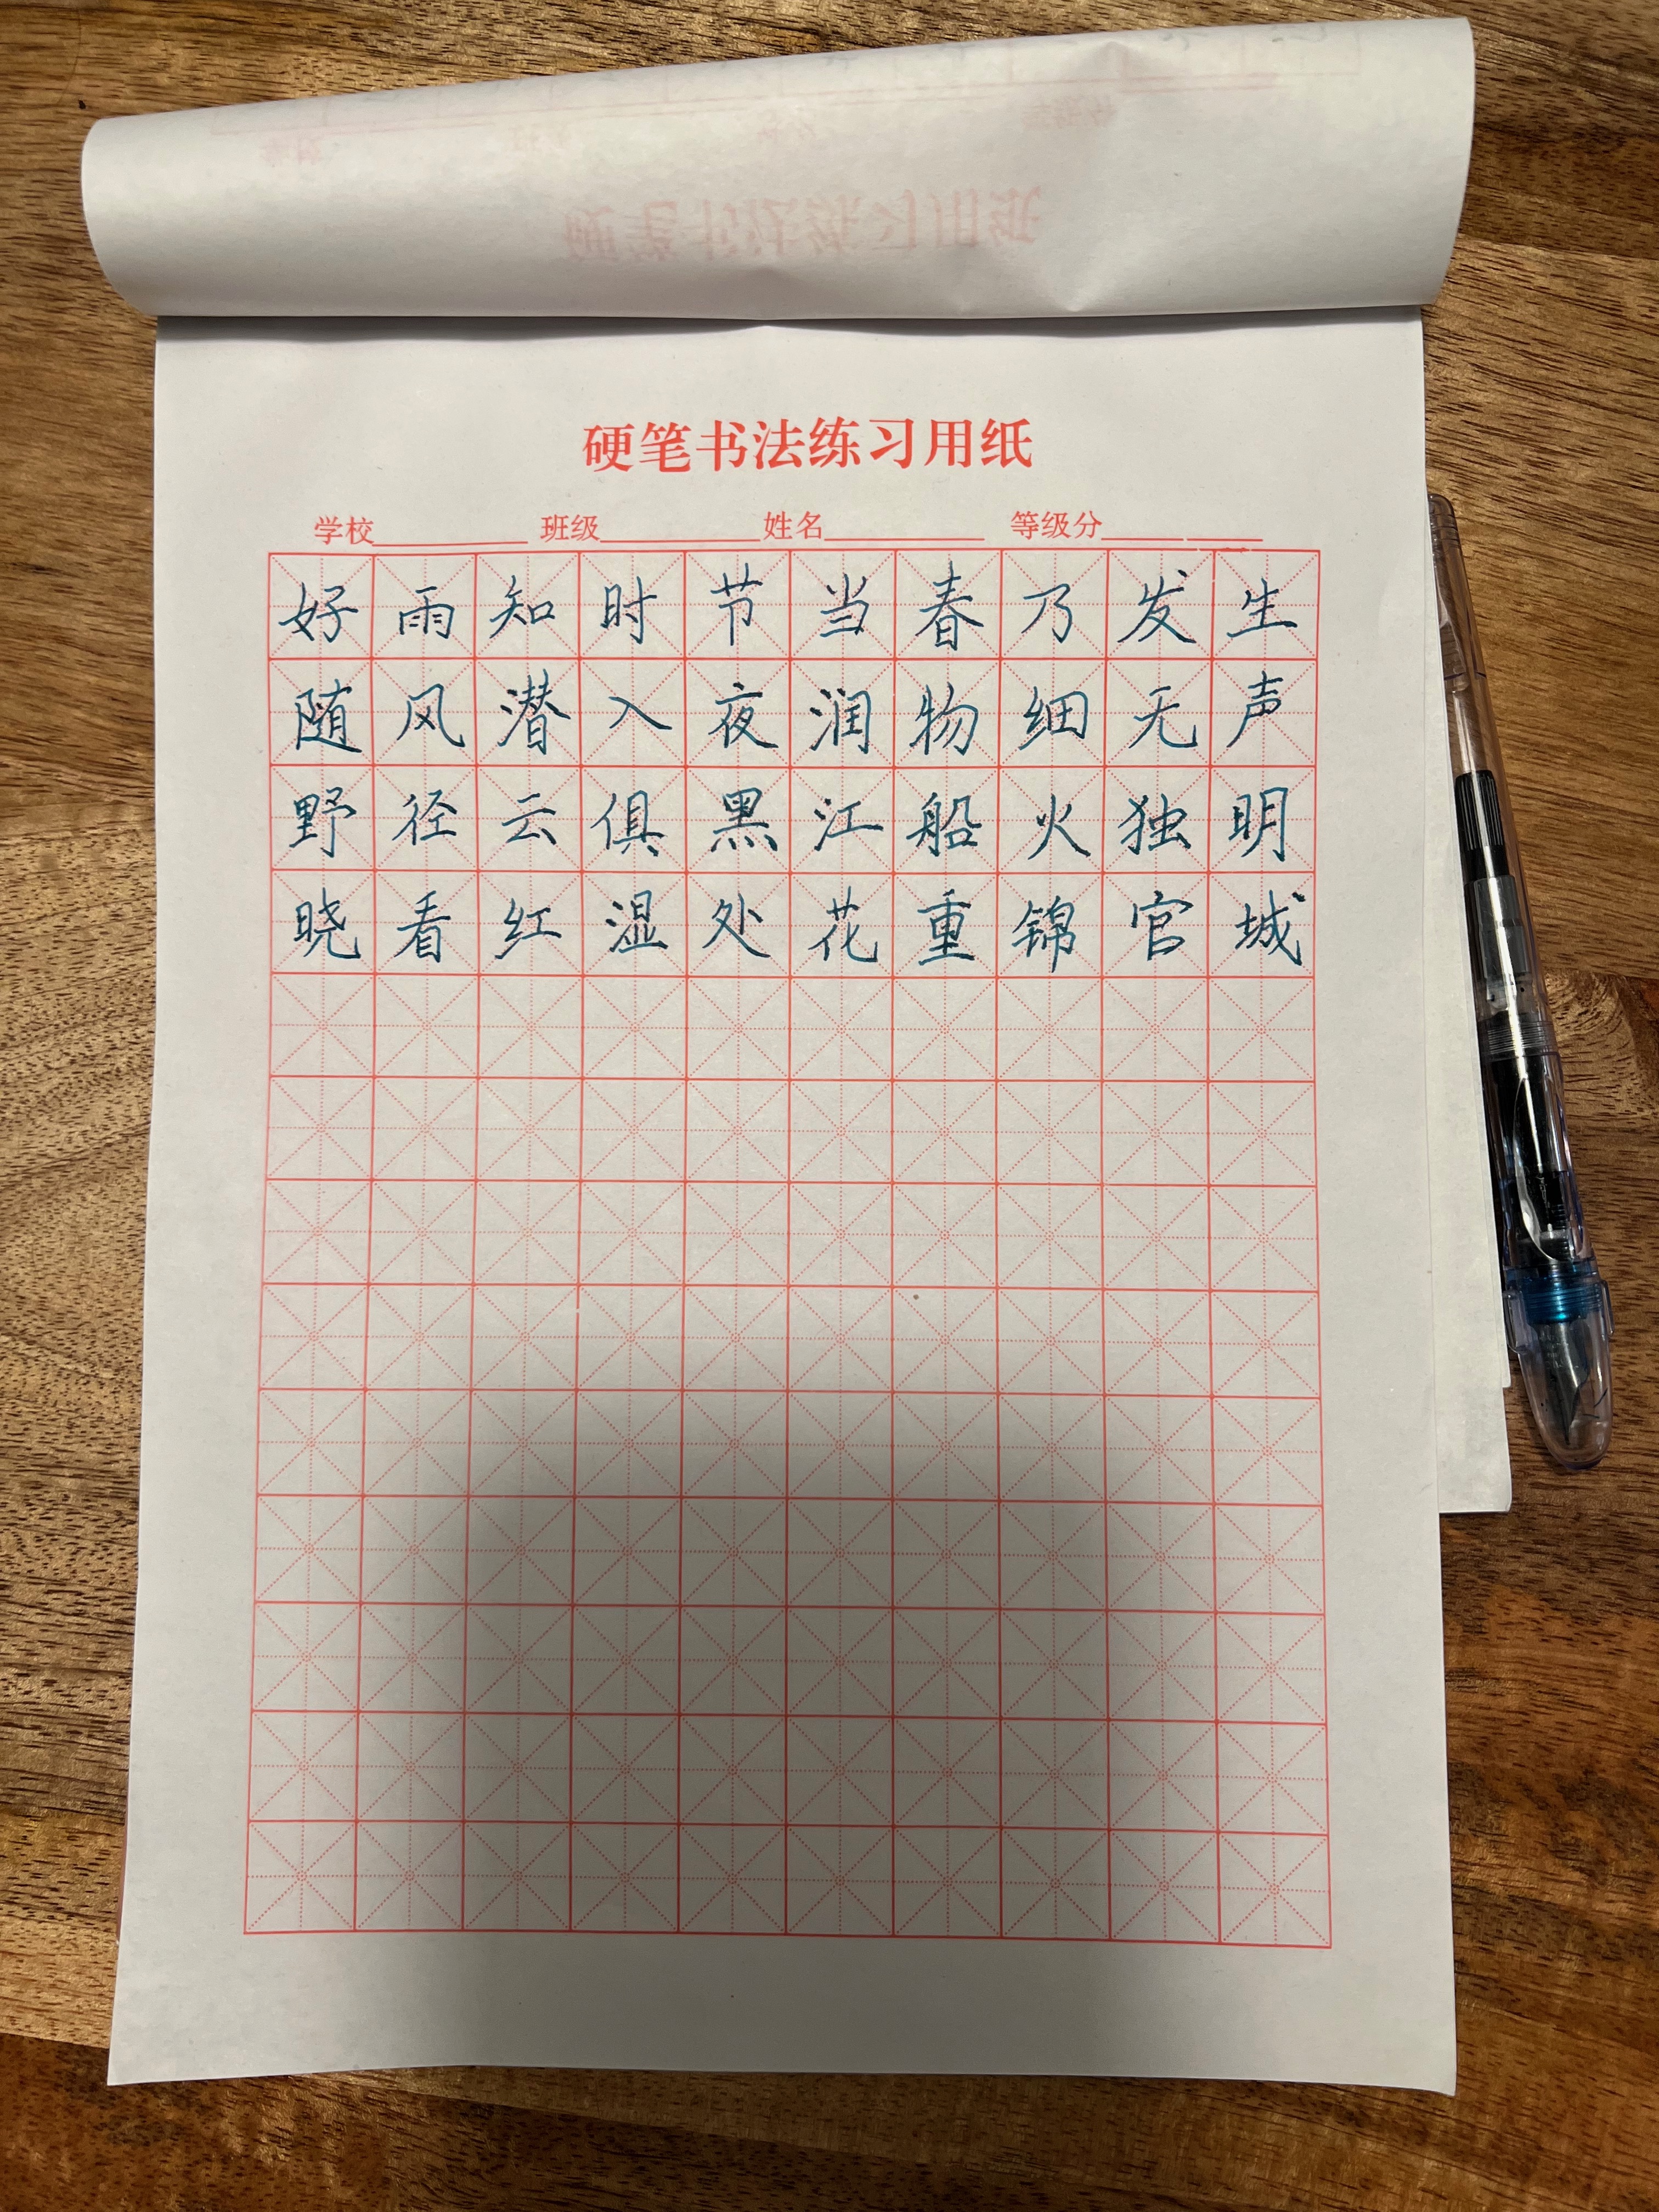 硬笔书法练习用纸
学校 班级 姓名 等级分
好雨知时节当春乃发生
随风潜入夜润物细无声
野径云俱黑江船火独明
晓看红湿处花重锦官城